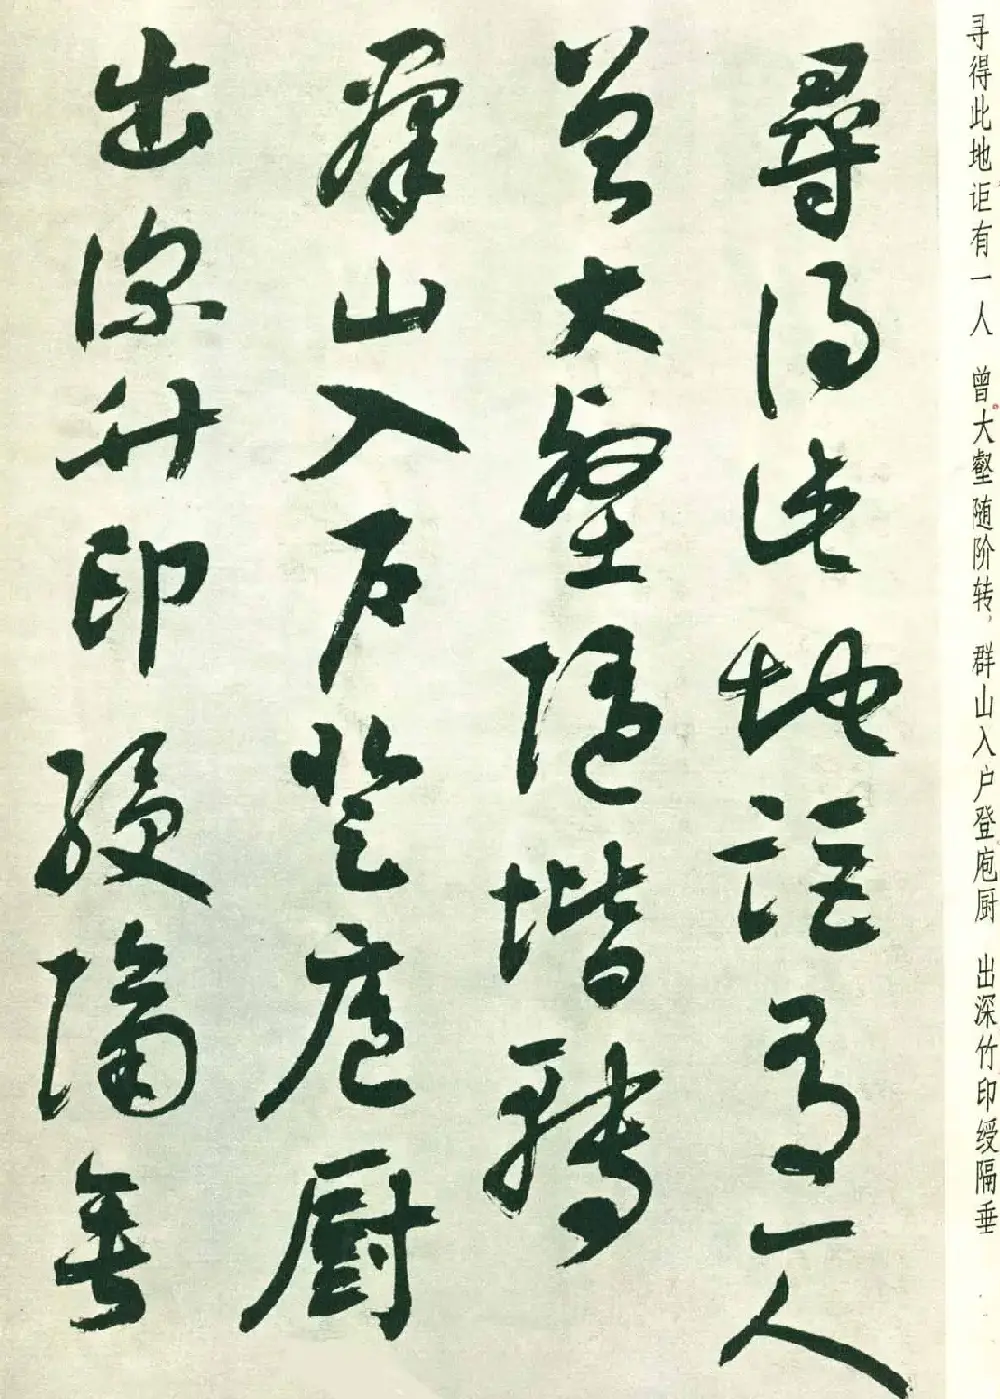 寻得此地讵有一人 曾大壑随阶转，群山入户登庖厨 出深竹印绶隔垂
尋得此地詎有一人
曾大壑隨堦轉
羣山入戶登庖厨
出深竹印綬隔垂